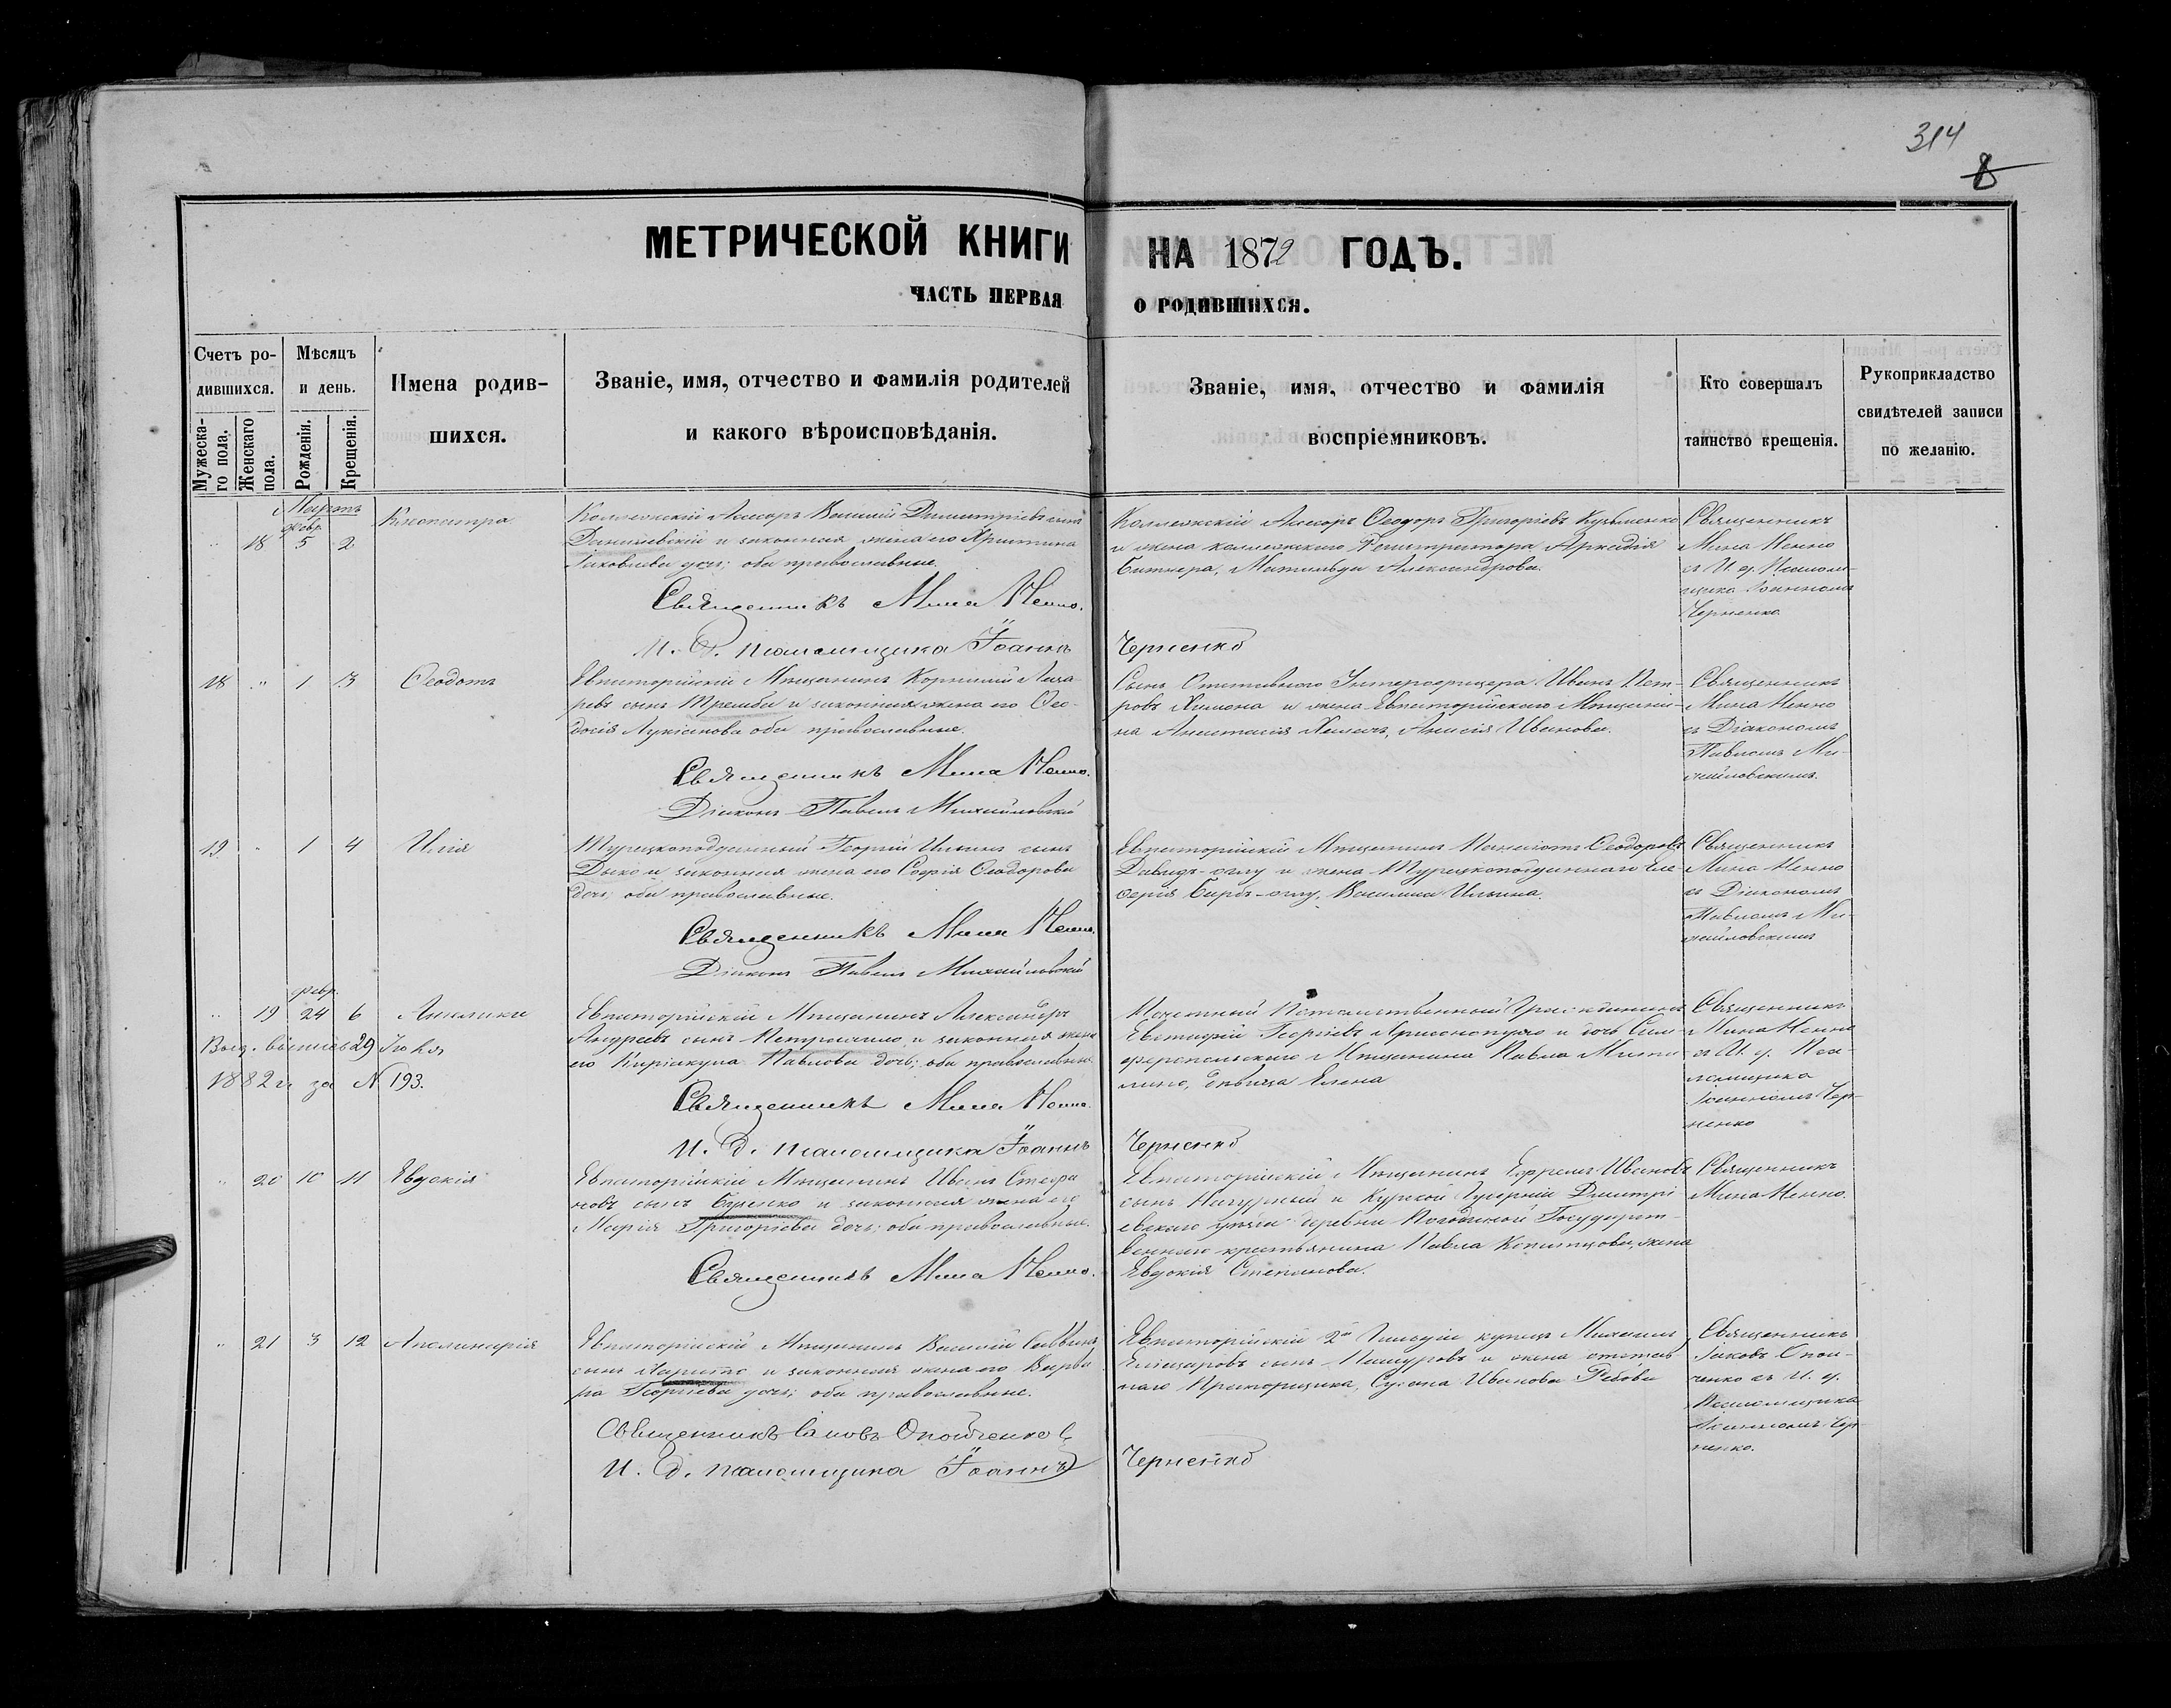 314
8
МЕТРИЧЕСКОЙ КНИГИ НА 1872 ГОДЪ.
ЧАСТЬ ПЕРВАЯ О РОДИВШИХСЯ.
Счетъ ро-
дившихся.
Мужеска-
го пола.
Женскаго
пола.
Мѣсяцъ
и день.
Рожденія.
Крещенія.
Имена родив-
шихся.
Званіе, имя, отчество и фамилія родителей
и какого вѣроисповѣданія.
Званіе, имя, отчество и фамилія
воспріемниковъ.
Кто совершалъ
таинство крещенія.
Рукоприкладство
свидѣтелей записи
по желанію.
Мартъ
февр.
" 18 5 2 Клеопатра
Коллежскій Ассесоръ Василій Димитріевъ сынъ
и законная жена его Христина
Іаковлева дочь; оба православные.
Священникъ Мина Ненно.
И. Д. псаломщика Іоаннъ Черненко
Коллежскій Ассесоръ Ѳеодоръ Григоріевъ Кузьменко
и жена коллежскаго Регистратора Аркадія
Матильда Александрова.
Священникъ
Мина Ненно
съ И. д. Псалом-
щика Іоанномъ
Черненко
18 " 1 3 Ѳеодотъ
Евпаторійскій Мѣщанинъ Корнилій Лаза-
ревъ сынъ Тремба и законная жена его Ѳео-
досія Лукіанова оба православные.
Священникъ Мина Ненно.
Діаконъ Павелъ Михайловскій
Сынъ Отставного Унтерофицера Иванъ Пет-
ровъ и жена Евпаторійскаго Мѣщани-
на Анастасія Анисія Иванова.
Священникъ
Мина Ненно
съ Діакономъ
Павломъ Ми-
хайловскимъ.
19 " 1 4 Илія
Турецкоподданный Георгій Ильинъ сынъ
Дыко и законная жена его Софія Ѳеодорова
дочь; оба православные.
Священникъ Мина Ненно.
Діаконъ Павелъ Михайловскій
Евпаторійскій Мѣщанинъ Панаіотъ Ѳеодоровъ
Давидъ-оглу и жена Турецкоподданнаго Еле
Василиса Ильина.
Священникъ
Мина Ненно
съ Діакономъ
Павломъ Ми-
хайловскимъ
февр.
" 19 24 6 Анжелика
29 Іюля
1882 г. за N 193.
Евпаторійскій Мѣщанинъ Александръ
Андреевъ сынъ и законная жена
его Киріакула Павлова дочь; оба православные.
Священникъ Мина Ненно.
И. Д. псаломщика Іоаннъ Черненко
Почетный Потомственный Гражданинъ
Евстафій Георгіевъ и дочь Сим-
феропольскаго Мѣщанина Павла
дѣвица Елена
Священникъ
Мина Ненно
съ И. д. Пса-
ломщика
Іоанномъ Чер-
ненко
" 20 10 11 Евдокія
Евпаторійскій Мѣщанинъ Иванъ Стефа
новъ сынъ и законная жена его
Марія Григоріева дочь; оба православные.
Священникъ Мина Ненно.
Евпаторійскій Мѣщанинъ Ефремъ Ивановъ
сынъ и Курской Губерніи Димитрі
евскаго уѣзда деревни Государст-
веннаго крестьянина Павла жена
Евдокія Степанова.
Священникъ
Мина Ненно.
" 21 3 12 Аполинарія
Евпаторійскій Мѣщанинъ Василій Саввинъ
сынъ и законная жена его Варва
ра Георгіева дочь; оба православные.
Священникъ Іаковъ Опойченко
И. Д. псаломщика Іоаннъ Черненко
Евпаторійскій 2й Гильдіи купецъ Михаилъ
сынъ и жена отстав
наго Прапорщика, Сусана Иванова
Священникъ
Іаковъ Опой-
ченко съ И. д.
Псаломщика
Іоанномъ Чер-
ненко.